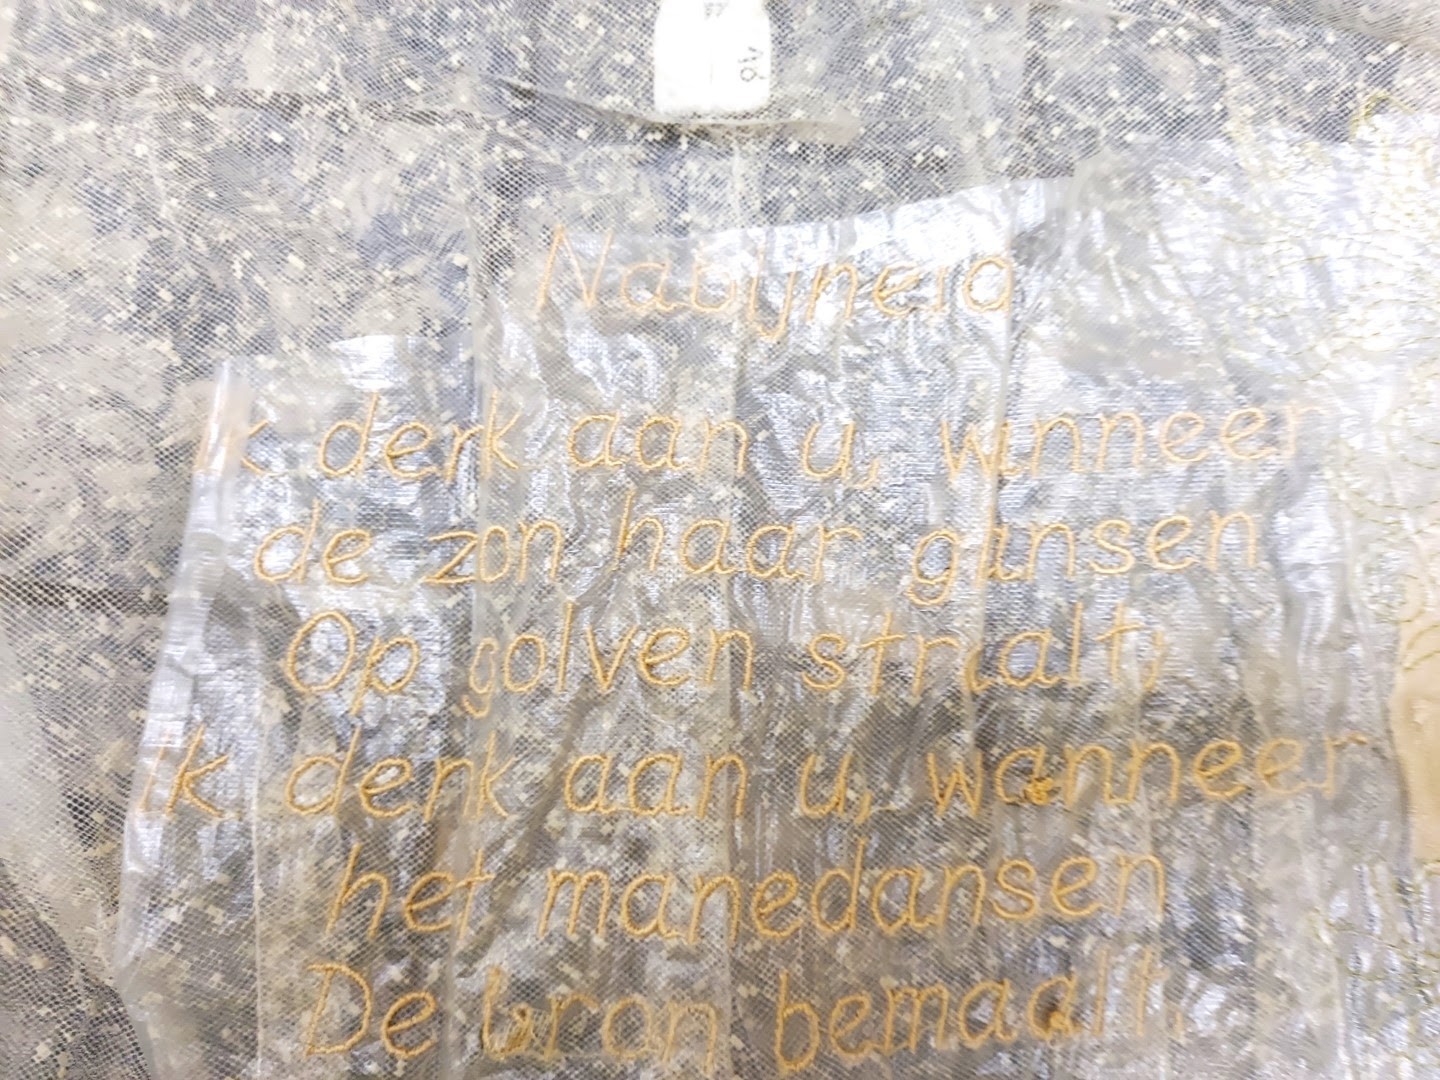 Nabijheid
Ik denk aan u, wanneer
de zon haar glansen
Op golven straalt;
Ik denk aan u, wanneer
het manedansen
De bron bemaalt.